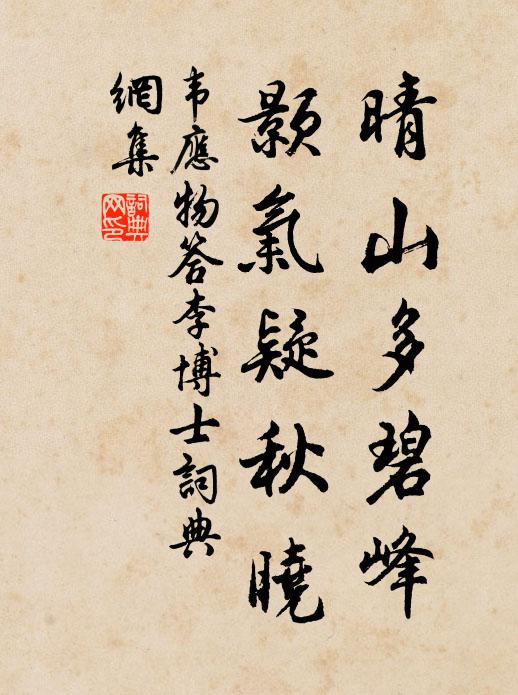 晴山多碧峰
顥氣疑秋曉
韦應物答李博士詞典
網集
詞典
网印